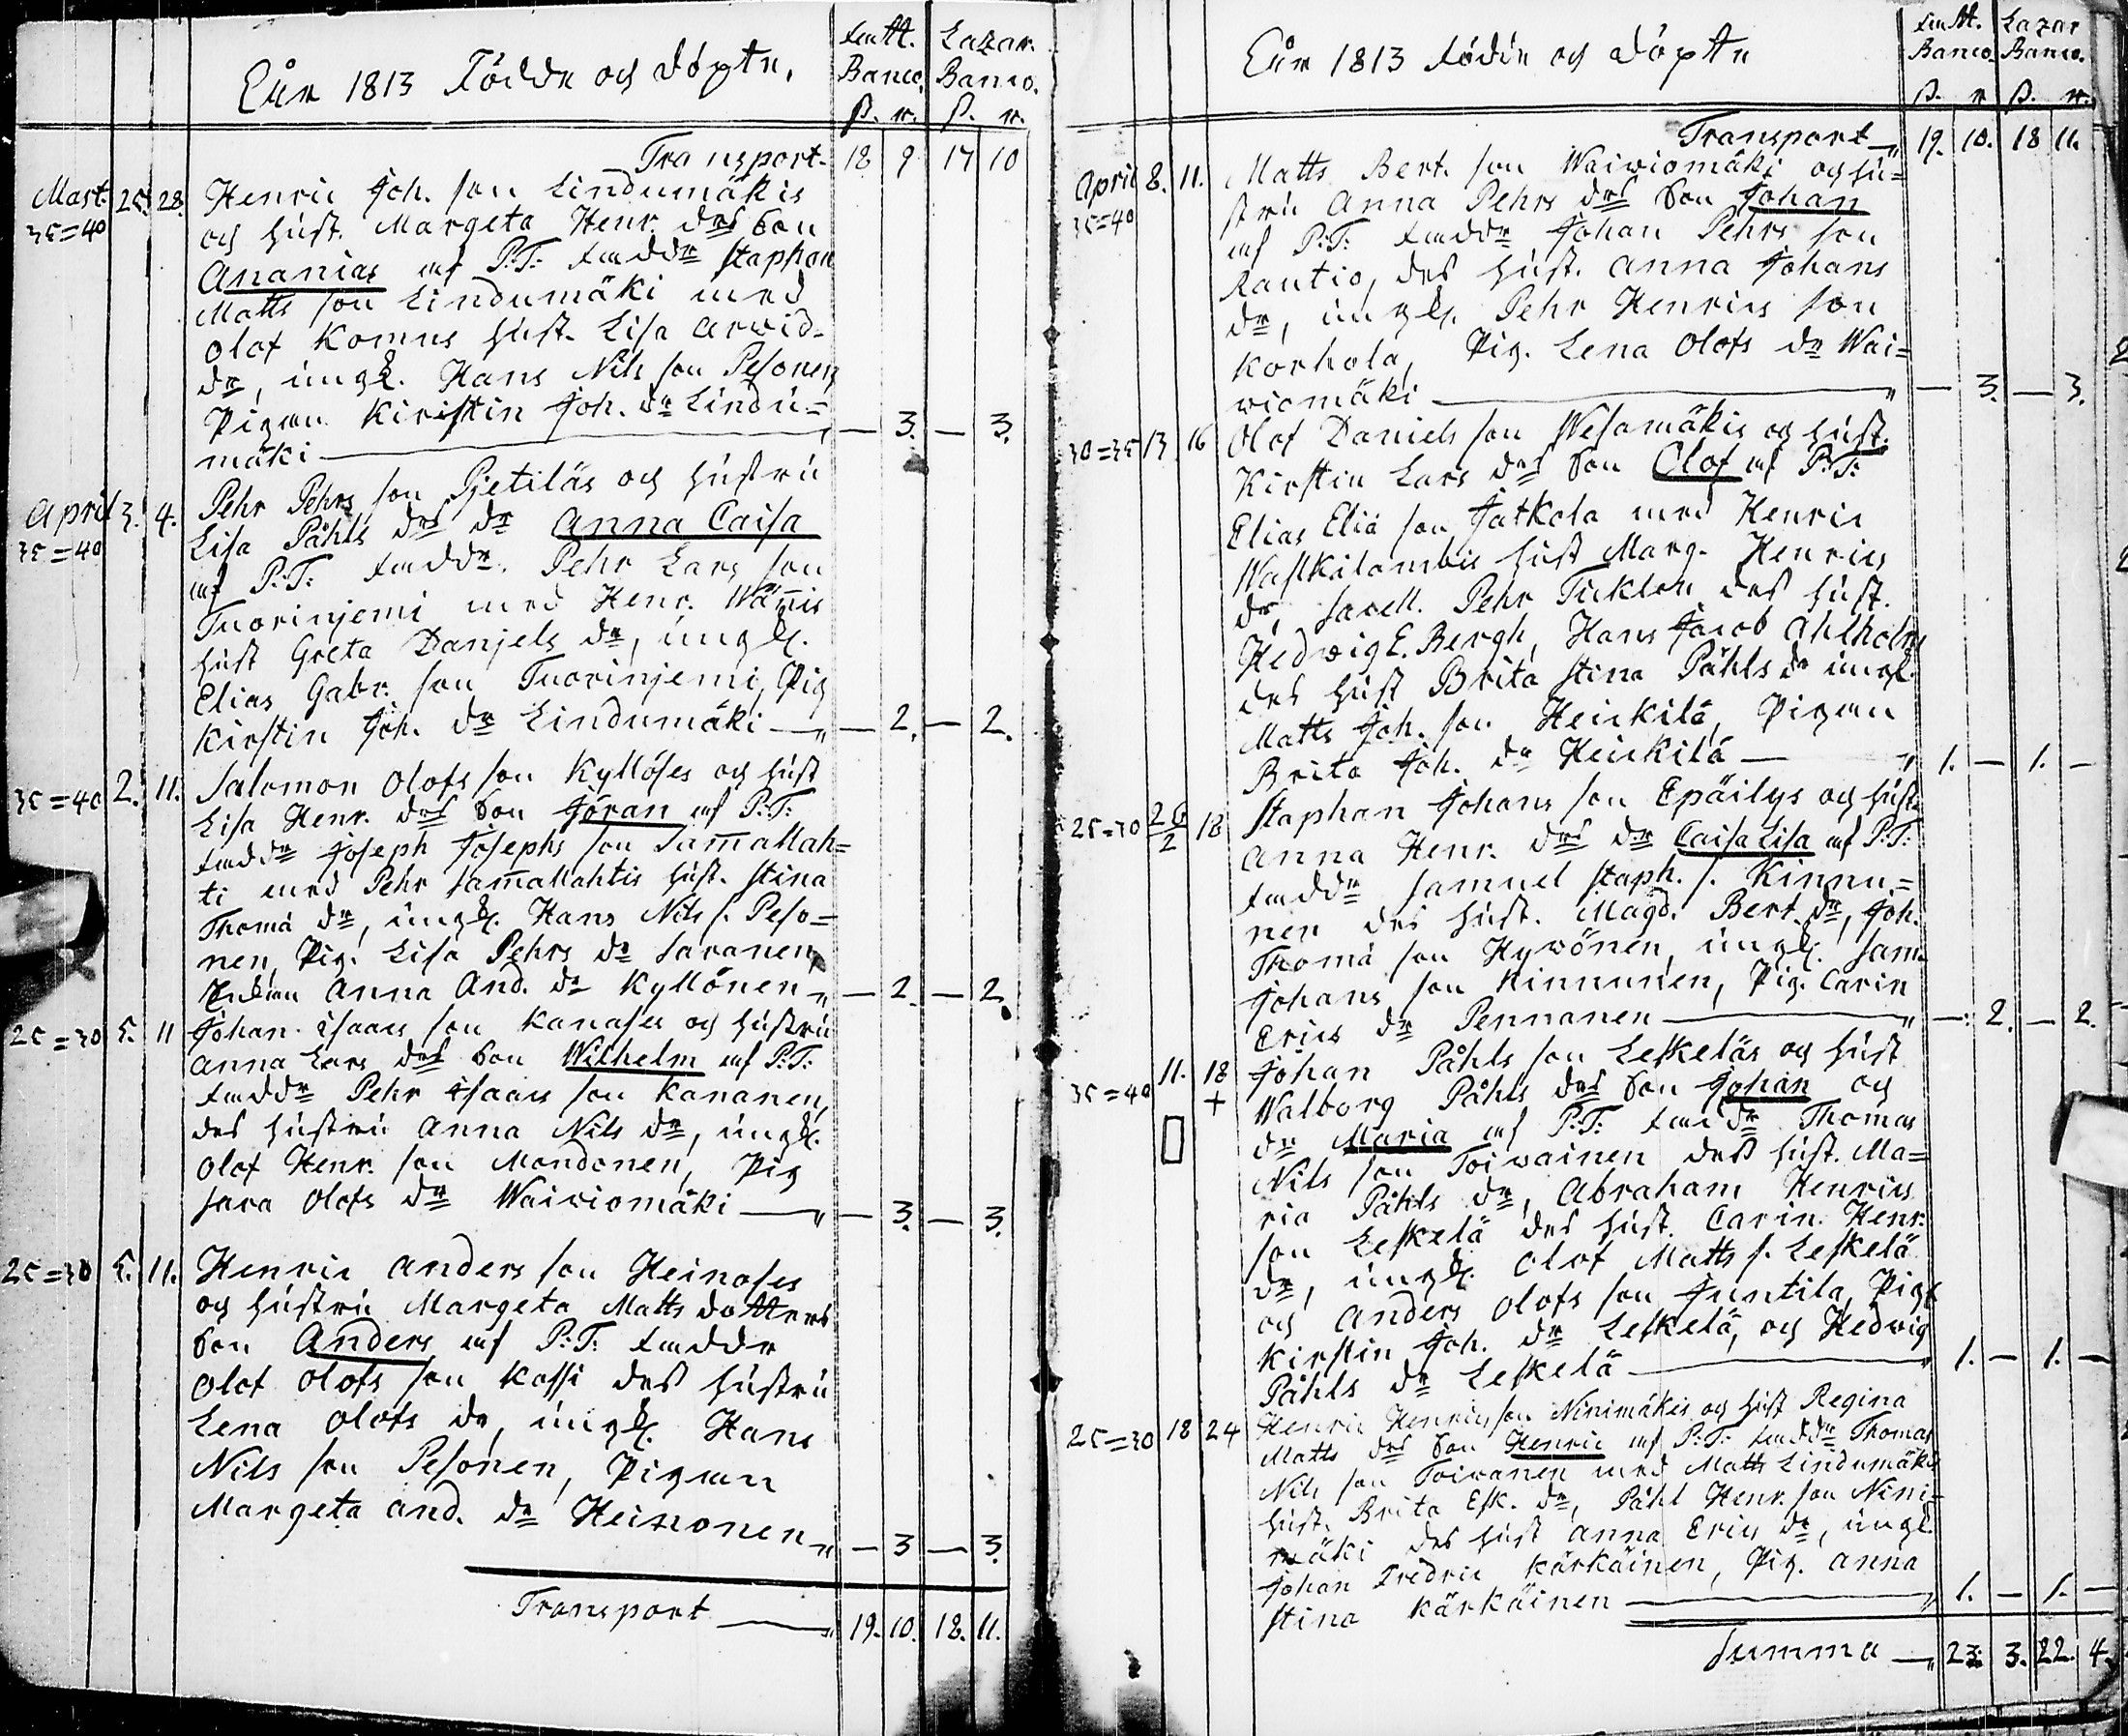 Eür 1813 Födde och döpte.
Fatt. Banco. Lazar. Banco.
ß. r. ß. r.
Transport. 18 9 17 10
Mart. 25. 28. Henric Joh. son Lindumäkis
35=40 och hust. Margeta Henr. drs Son
Ananias af P:T: Faddr Staphan
Matts son Lindumäki med
Olof Komus hust. Lisa Arvid-
dr, ungk. Hans Nils son Pesonen
Pigan Kirstin Joh. dr Lindu=
mäki — 3. — 3.
April 3. 4. Pehr Pehrs son Pjetiläs och hustru
35=40 Lisa Påhls drs dr Anna Caisa
af P:T: Faddr. Pehr Lars son
Tuorinjemi med Henr. Wännis
hust Greta Danjels dr, ungk.
Elias Gabr. son Tuorinjemi, Pig
Kirstin Joh. dr Lindumäki — 2. — 2.
35=40 2. 11. Salomon Olofs son Kyllöses och hust
Lisa Henr. drs Son Jöran af P:T:
Faddr Joseph Josephs son Sam̄allah=
ti med Pehr Sam̄allahtis hust. Stina
Thomä dr, ungk. Hans Nils s. Peso=
nen, Pig. Lisa Pehrs dr Saranen,
Anna And. dr Kyllönen — 2. — 2.
25=30 5. 11 Johan Isaacs son Kanases och hustru
Anna Lars drs Son Wilhelm af P:T:
Faddr Pehr Isaacs son Kananen,
des hustru Anna Nils dr, ungk.
Olof Henr. son Mondonen, Pig
Sara Olofs dr Waiviomäki — 3. — 3.
25=30 5. 11. Henric Anders son Heinoses
och hustru Margeta Matts dotters
Son Anders af P:T: Faddr
Olof Olofs son Kassi des hustru
Lena Olofs dr, ungk. Hans
Nils son Pesonen, Pigan
Margeta And. dr Heinonen — 3 — 3.
Transport — 19. 10. 18. 11.
Eür 1813 Födde och döpte
Fatt. Banco. Lazar Banco.
ß. r ß. r.
Transport 19. 10. 18 11.
April 8. 11. Matts Bert. son Waiviomäki och hu=
35=40 stru Anna Pehrs drs Son Johan
af P:T: Faddr Johan Pehrs son
Rautio, des hust. Anna Johans
dr, ungk. Pehr Henrics son
Korhola, Pig. Lena Olofs dr Wai=
viomäki — 3. — 3.
30=35 13 16 Olof Daniels son Wesamäkis och hust.
Kirstin Lars drs Son Olof af P:T:
Elias Eliä son Jatkola med Henric
Waskilambis hust Marg. Henrics
dr, Sacell. Pehr Ticklen des hust.
Hedwig E. Bergh, Hans Jacob Ahlholm
des hust Brita Stina Påhls dr ungk.
Matts Joh. son Heickilä, Pigan
Brita Joh. dr Heickilä — 1. — 1. —
25=30 26/2 18 Staphan Johans son Epäilys och hust.
Anna Henr. drs dr Caisa Lisa af P:T:
Faddr Samuel Staph. s. Kinnu=
nen des hust. Magd. Bert. dr, Joh.
Thomä son Hyvönen, ungk. Sam.
Johans son Kinnunen, Pig. Carin
Erics dr Pennanen — 2. — 2.
35=40 11. 18 + Johan Påhls son Leskeläs och hust
Walborg Påhls drs Son Johan och
dr Maria af P:T: Faddr Thomas
Nils son Toivainen des hust. Ma=
ria Påhls dr, Abraham Henrics
son Leskelä des hust. Carin Henr.
dr, ungk. Olof Matts s. Leskelä
och Anders Olofs son Juntila, Pig
Kirstin Joh. dr Leskelä, och Hedwig
Påhls dr Leskelä — 1. — 1. —
25=30 18 24 Henric Henrics son Ninimäkis och hust Regina
Matts drs Son Henric af P:T: Faddr Thomas
Nils son Toivanen med Matts Lindumäkis
hust. Brita Esk. dr, Påhl Henr. son Nini=
mäki des hust Anna Erics dr, ungk.
Johan Fredric Kärkäinen, Pig. Anna
Stina Kärkäinen — 1. — 1. —
Summa — 23. 3. 22. 4.